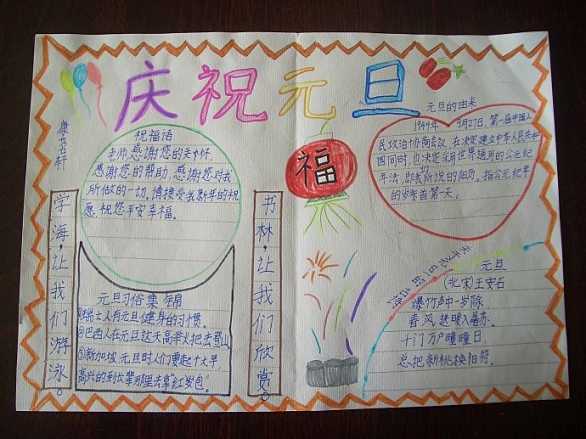 庆祝元旦
祝福语
老师,感谢您的关怀,
感谢您的帮助,感谢您对我
所做的一切,请接受我新年的祝
愿,祝您平安幸福。
学海·让我们游泳。
书林·让我们欣赏。
元旦习俗集锦
①瑞士人有元旦健身的习惯。
②巴西人在元旦这天高举火把去登山
③新加坡元旦时人们要起个大早,
高兴的到长辈那里去拿红发包。
福
元旦的由来
1949年9月27日,第一届中国人
民政治协商会议,在决定建立中华人民共和
国同时,也决定采用世界通用的公元纪
年法,即我所说的阳历。指公元纪年
的岁首第一天。
元旦
(北宋)王安石
爆竹声中一岁除
春风送暖入屠苏。
千门万户曈曈日
总把新桃换旧符。